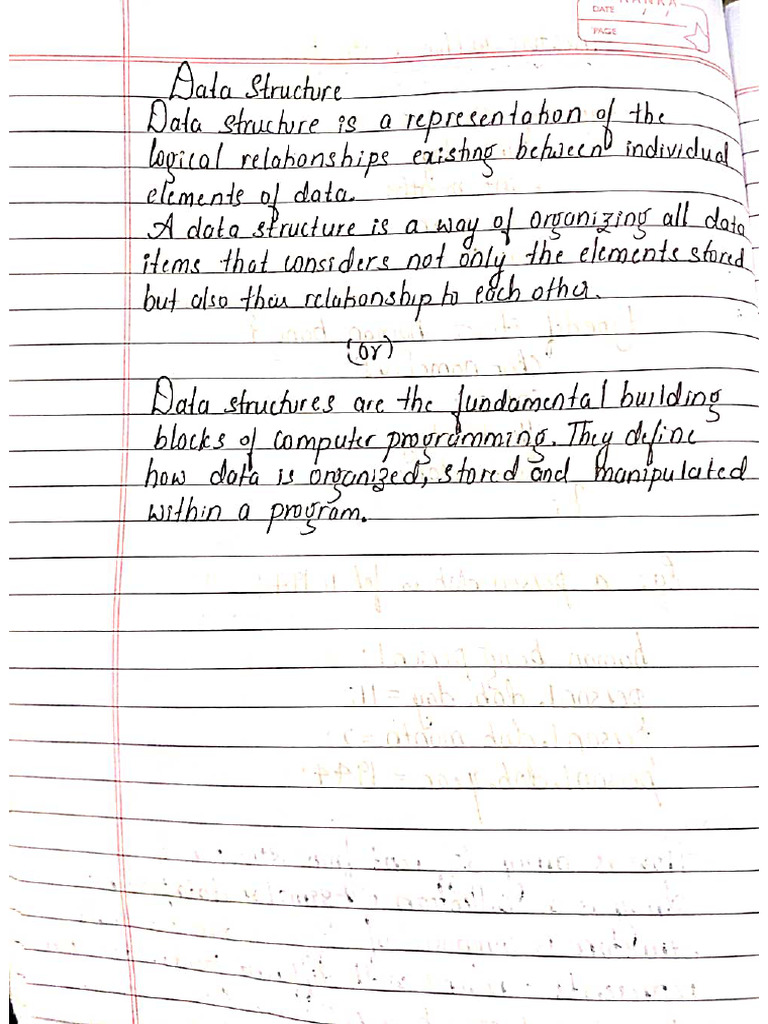 DATE / /
PAGE
Data Structure
Data structure is a representation of the
logical relationships existing between individual
elements of data.
A data structure is a way of organizing all data
items that considers not only the elements stored
but also their relationship to each other.
(or)
Data structures are the fundamental building
blocks of computer programming. They define
how data is organized, stored and manipulated
within a program.